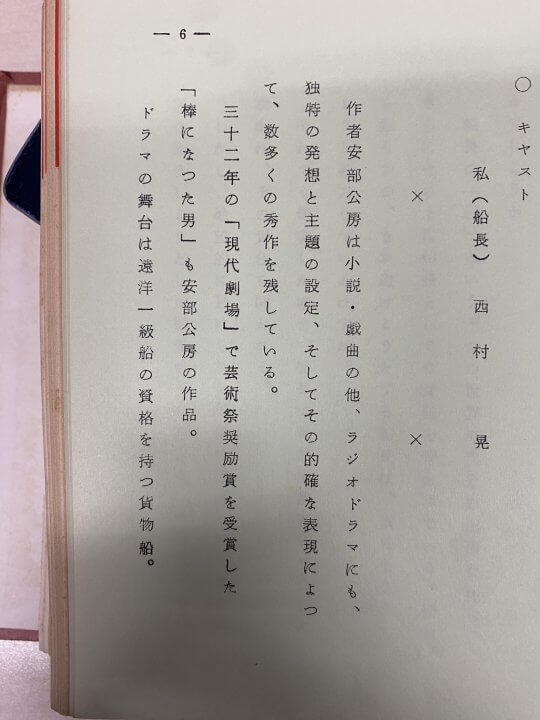 ○ キヤスト
私（船長） 西村 晃
× ×
作者安部公房は小説・戯曲の他、ラジオドラマにも、
独特の発想と主題の設定、そしてその的確な表現によつ
て、数多くの秀作を残している。
三十二年の「現代劇場」で芸術祭奨励賞を受賞した
「棒になつた男」も安部公房の作品。
ドラマの舞台は遠洋一級船の資格を持つ貨物船。
— 6 —